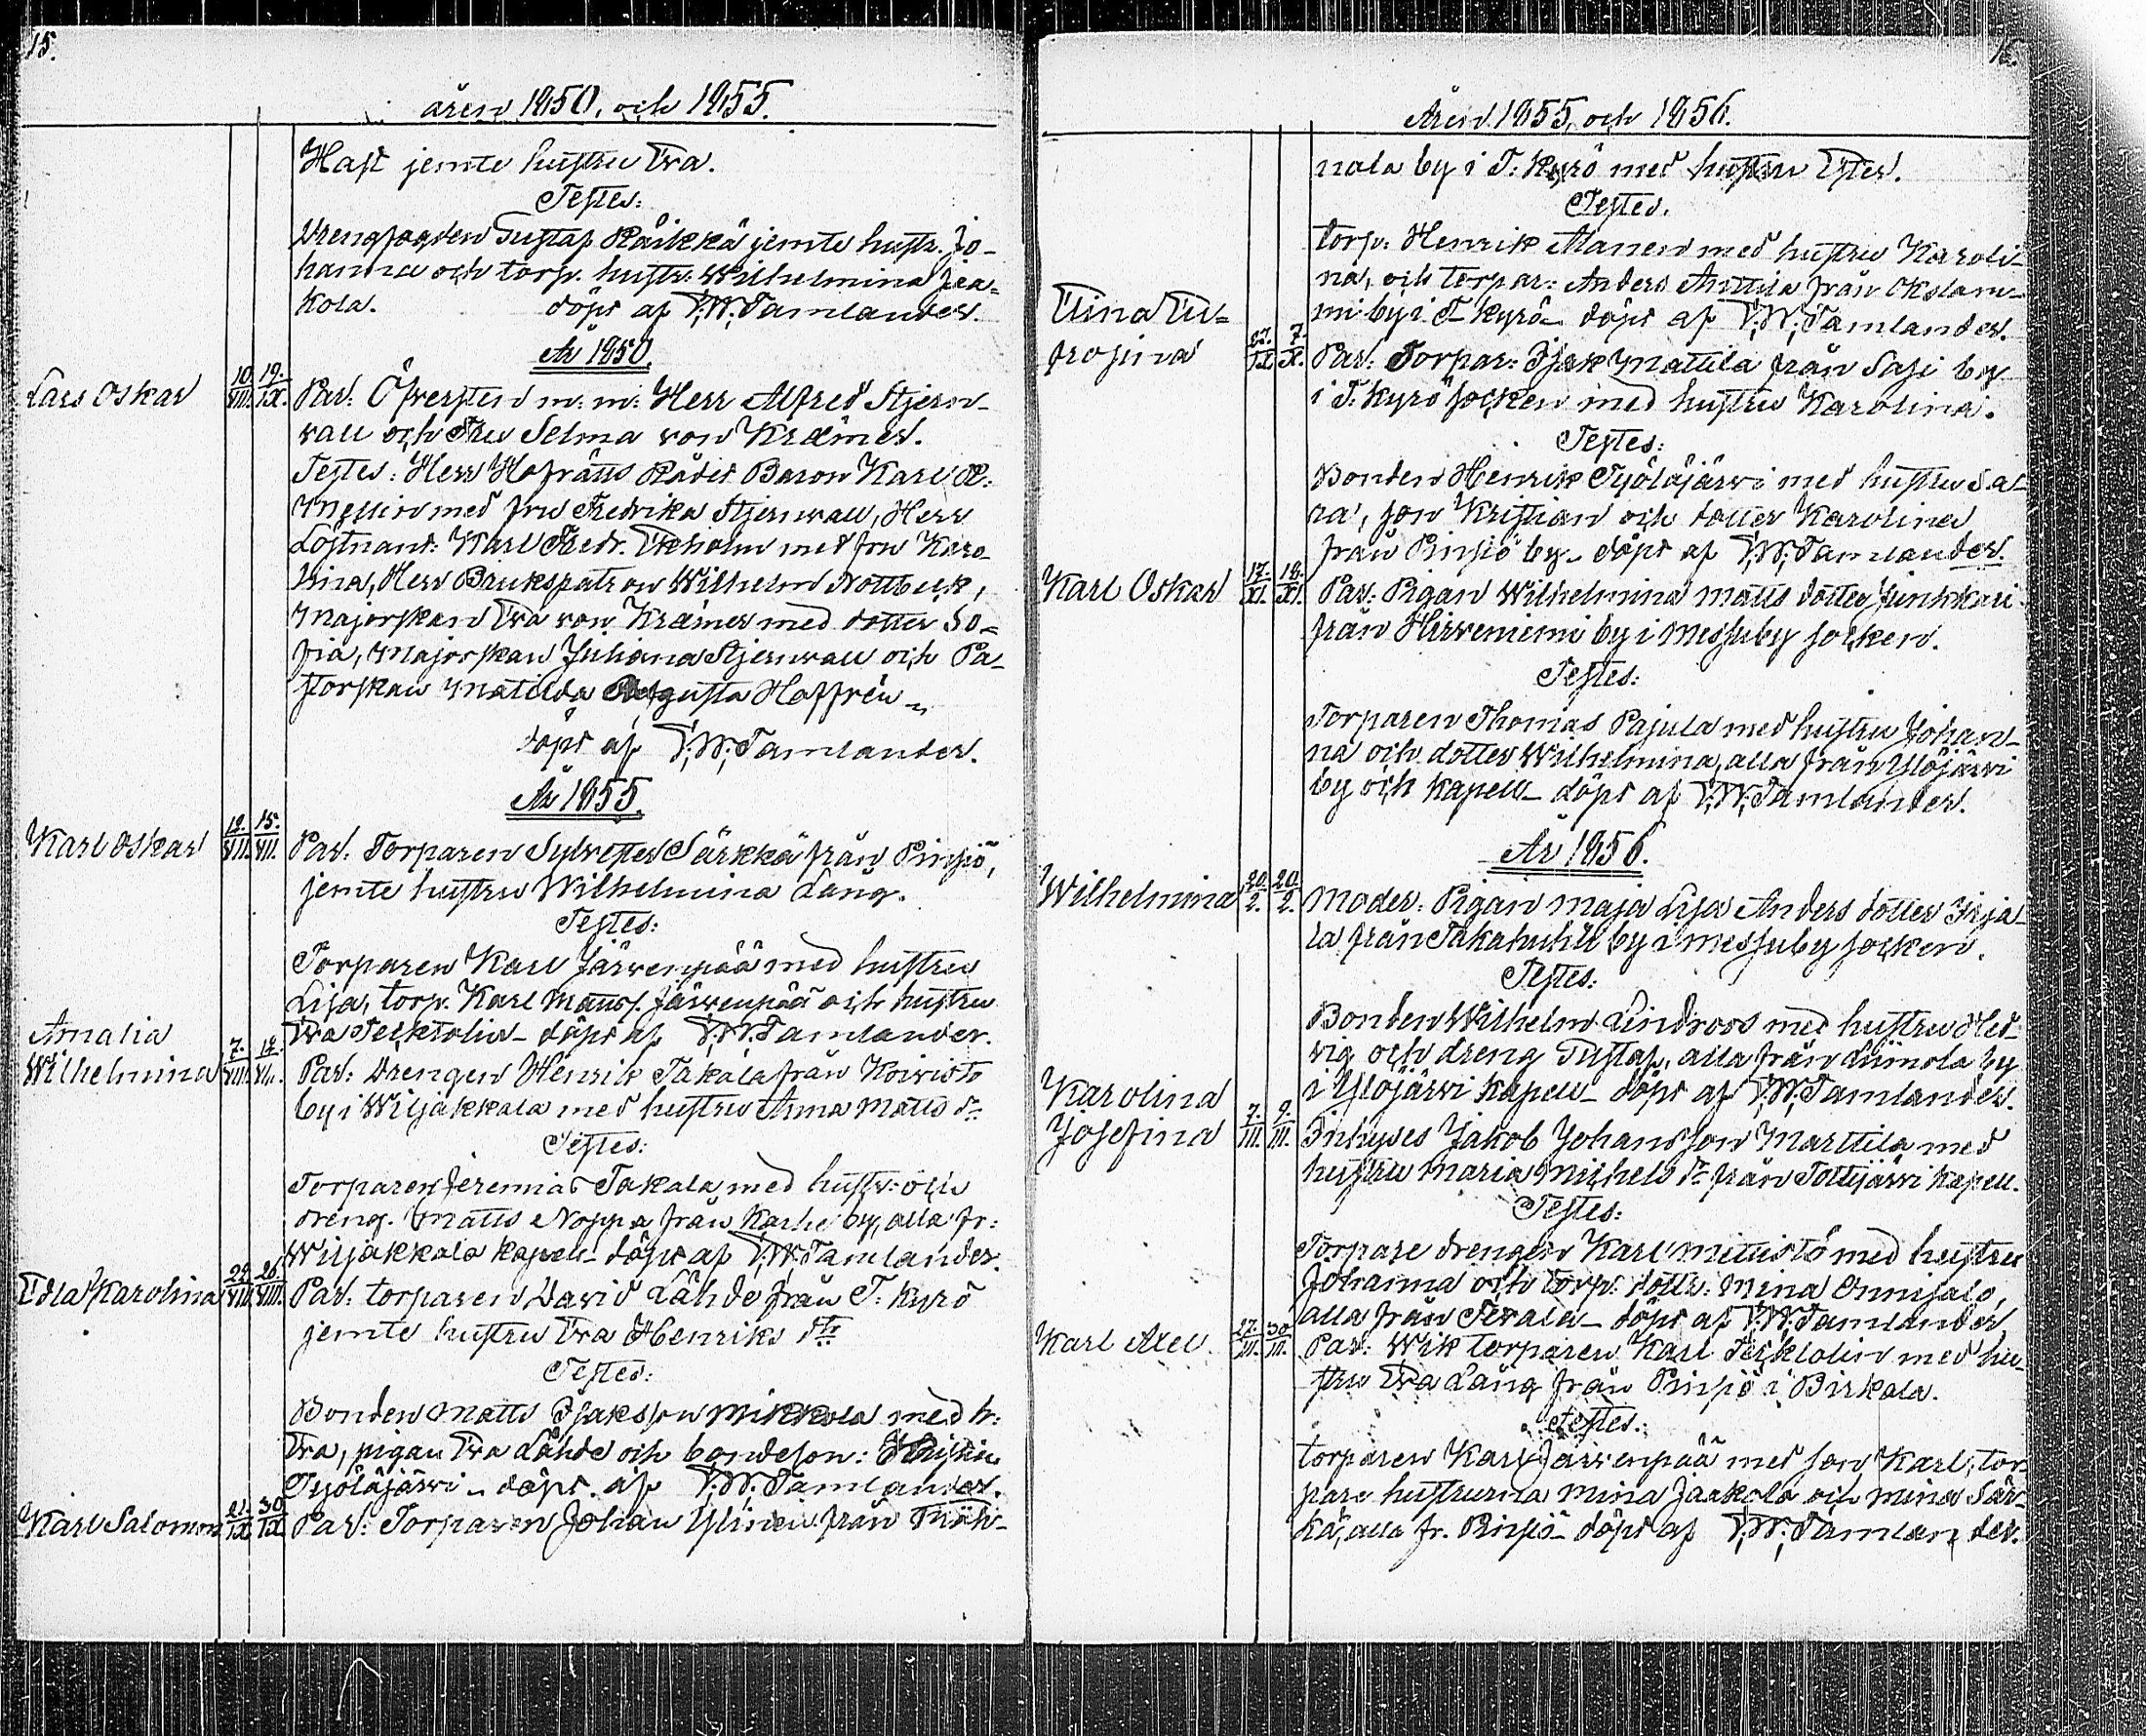 15.
åren 1850, och 1855.
Haft jemte hustru Eva.
Testes:
Drengfogden Gustaf Räikkä jemte hustr. Jo-
hanna och torp. hustr: Wilhelmina Jaa-
kola. döpt af F: W: Tamlander.
År 1850.
Lars Oskar 10/VIII. 19./IX. Par: Öfversten m: m: Herr Alfred Stjern-
vall och Fru Selma von Kræmer.
Testes: Herr Hofrätts Rådet Baron Karl R:
Mellin med fru Fredrika Stjernvall, Herr
Löjtnant: Karl Fredr. Ekholm med fru Karo-
lina, Herr Brukspatron Wilhelm Nottbeck,
Majorskan Eva von Kræmer med dotter So-
fia, Majorskan Juliana Stjernvall och Pa-
storskan Matilda Augusta Hoffrén
döpt af F: W: Tamlander.
År 1855.
Karl Oskar 12./VII. 15./VII. Par: Torparen Sylvester Särkkä från Pinsiö,
jemte hustru Wilhelmina Lång.
Testes:
Torparen Karl Järvenpää med hustru
Lisa, torp. Karl Matts s. Järvenpää och hustru
Eva Tecktolin - döpt af F: W: Tamlander.
Amalia
Wilhelmina 7./VIII. 12./VIII. Par: Drengen Henrik Takala från Koivisto
by i Wiljakkala med hustru Anna Matts dr
Testes:
Torparen Jeremias Takala med hustr: och
dreng. Matts Noppa från Karhe by, alla fr:
Wiljakkala kapell - döpt af F: W: Tamlander.
Edla Karolina 22./VIII. 26./VIII. Par: torparen David Lähde från T: Kyrö
jemte hustru Eva Henriks dtr
Testes:
Bonden Matts Isaksson Mikkola med h:
Eva, pigan Eva Lähde och bondeson:
Työläjärvi - döpt af F: W: Tamlander.
Karl Salomon 21./IX. 30/IX Par: Torparen Johan Ylinen från
15.
Åren 1855, och 1856.
nala by i T: Kyrö med hustru Ester.
Testes.
torp: Henrik Alanen med hustru Karoli-
na, och torpar: Anders Anttila från
mi by i T- Kyrö - döpt af F: W: Tamlander.
Elina Eu-
frosina 22./IX. 7./X. Par: Torpar: Isak Mattila från Sasi by
i T: Kyrö socken med hustru Karolina.
Testes:
Bonden Henrik Työläjärvi med hustru Sa-
ra, son Kristian och dotter Karolina
från Pinsiö by - döpt af F: W: Tamlander.
Karl Oskar 17./XI. 18./XI. Par: Pigan Wilhelmina Matts dotter Junkkari
från Hirveniemi by i Messuby socken.
Testes:
Torparen Thomas Pajula med hustru Johan-
na och dotter Wilhelmina, alla från Ylöjärvi
by och kapell - döpt af F: W: Tamlander.
År 1856.
Wilhelmina 20/2. 20/2. Moder: Pigan Maja Lisa Anders dotter Irja-
la från Takahuhti by i Messuby socken.
Testes:
Bonden Wilhelm Lindroos med hustru Hed-
vig och dreng Gustaf, alla från Liimola by
i Ylöjärvi kapell - döpt af F: W: Tamlander.
Karolina
Josefina 7./III. 9./III. Inhyses Jakob Johansson Marttila med
hustru Maria Michels dr från Tottijärvi kapell.
Testes:
Torpare drengen Karl Mittistö med hustru
Johanna och torp: dottr: Mina Onnisalo,
alla från Tevala - döpt af F: W: Tamlander
Karl Axel 27./III. 30/III. Par: Wik torparen Karl Tecktolin med hu-
stru Eva Lång från Pinsiö i Birkala.
Testes:
torparen Karl Järvenpää med son Karl, tor-
pare hustrurna Mina Jaakola och Mina Sär-
kä, alla fr. Pinsiö - döpt af F: W: Tamlander.